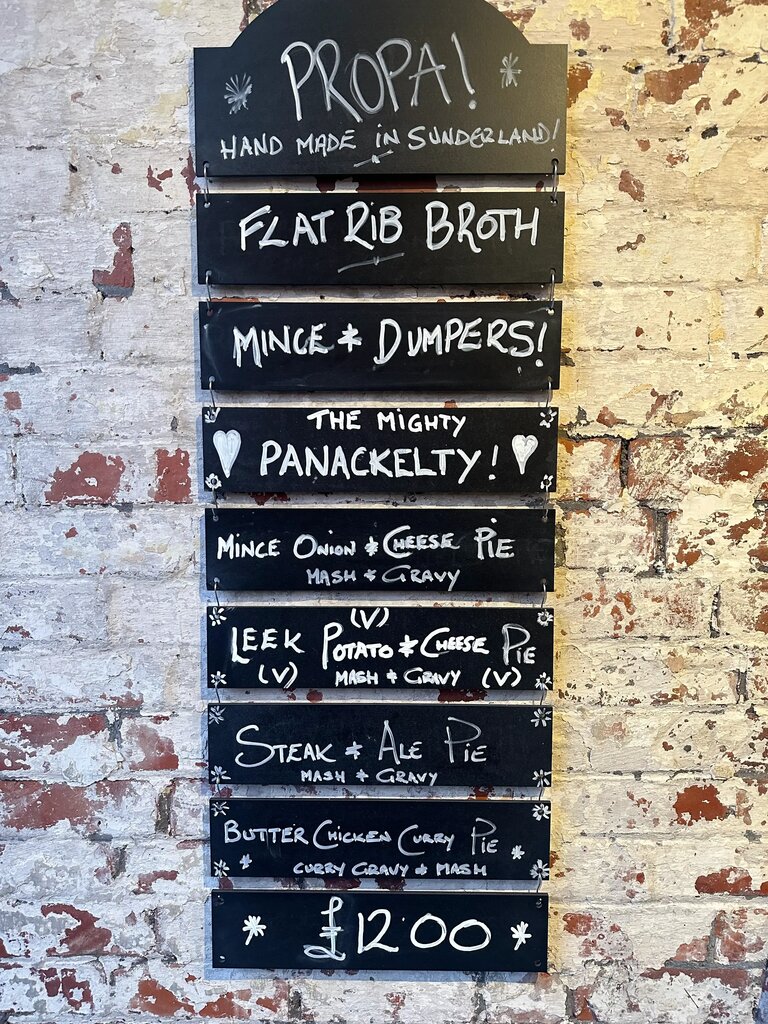 PROPA!
HAND MADE IN SUNDERLAND!
FLAT RIB BROTH
MINCE & DUMPERS!
THE MIGHTY
PANACKELTY!
MINCE ONION & CHEESE PIE
MASH & GRAVY
(V)
LEEK POTATO & CHEESE PIE
(V) MASH & GRAVY (V)
STEAK & ALE PIE
MASH & GRAVY
BUTTER CHICKEN CURRY PIE
CURRY GRAVY & MASH
£12.00